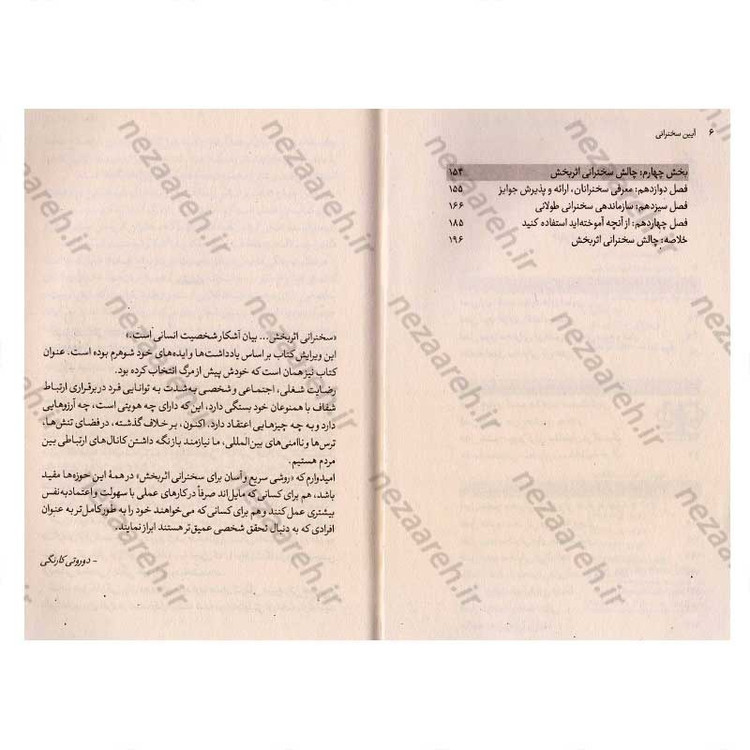 ۶ آیین سخنرانی
بخش چهارم: چالش سخنرانی اثربخش ۱۵۴
فصل دوازدهم: معرفی سخنرانان، ارائه و پذیرش جوایز ۱۵۵
فصل سیزدهم: سازماندهی سخنرانی طولانی ۱۶۶
فصل چهاردهم: از آنچه آموخته‌اید استفاده کنید ۱۸۵
خلاصه: چالش سخنرانی اثربخش ۱۹۶
«سخنرانی اثربخش... بیان آشکار شخصیت انسانی است.»
این ویرایش کتاب بر اساس یادداشت‌ها و ایده‌های خود شوهرم بوده است. عنوان
کتاب نیز همان است که خودش پیش از مرگ انتخاب کرده بود.
رضایت شغلی، اجتماعی و شخصی به‌شدت به توانایی فرد در برقراری ارتباط
شفاف با همنوعان خود بستگی دارد، این که دارای چه هویتی است، چه آرزوهایی
دارد و به چه چیزهایی اعتقاد دارد. اکنون، بر خلاف گذشته، در فضای تنش‌ها،
ترس‌ها و ناامنی‌های بین‌المللی، ما نیازمند باز نگه داشتن کانال‌های ارتباطی بین
مردم هستیم.
امیدوارم که «روشی سریع و آسان برای سخنرانی اثربخش» در همهٔ این حوزه‌ها مفید
باشد، هم برای کسانی که مایل‌اند صرفاً در کارهای عملی با سهولت و اعتمادبه‌نفس
بیشتری عمل کنند و هم برای کسانی که می‌خواهند خود را به طور کامل‌تر به عنوان
افرادی که به دنبال تحقق شخصی عمیق‌تر هستند ابراز نمایند.
- دوروتی کارنگی
nezaareh.ir
nezaareh.ir
nezaareh.ir
nezaareh.ir
nezaareh.ir
nezaareh.ir
nezaareh.ir
nezaareh.ir
nezaareh.ir
nezaareh.ir
nezaareh.ir
nezaareh.ir